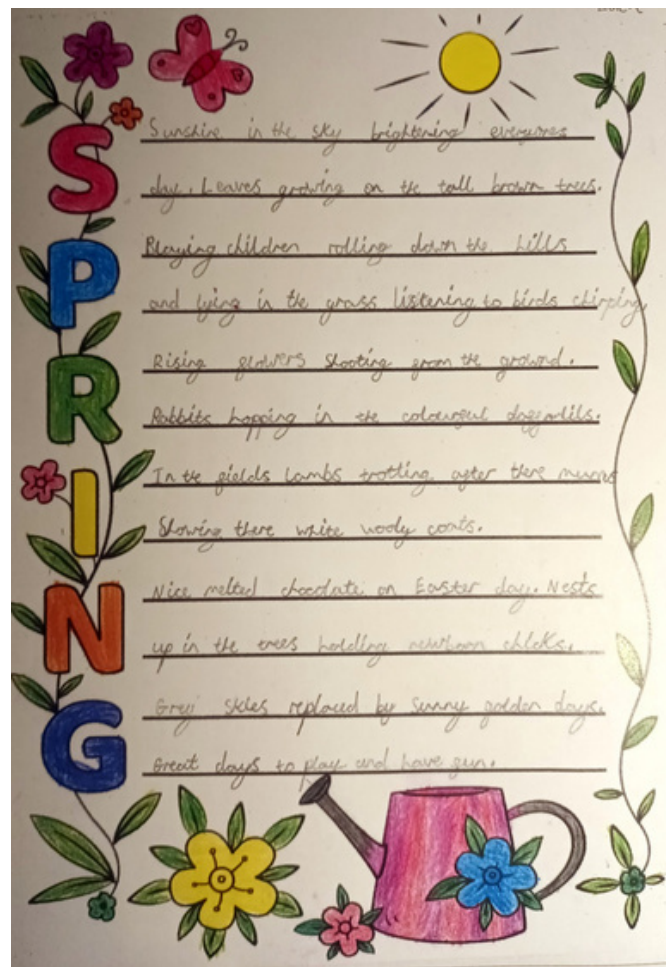 SPRING
Sunshine in the sky brightening everyones
day. Leaves growing on the tall brown trees.
Playing children rolling down the hills
and lying in the grass listening to birds chirping,
Rising flowers shooting from the ground.
Rabbits hopping in the colourful daffodils.
In the fields Lambs trotting after there mums
Showing there white wooly coats.
Nice melted chocolate on Easter day. Nests
up in the trees holding newborn chicks.
Grey skies replaced by sunny golden days.
Great days to play and have fun.